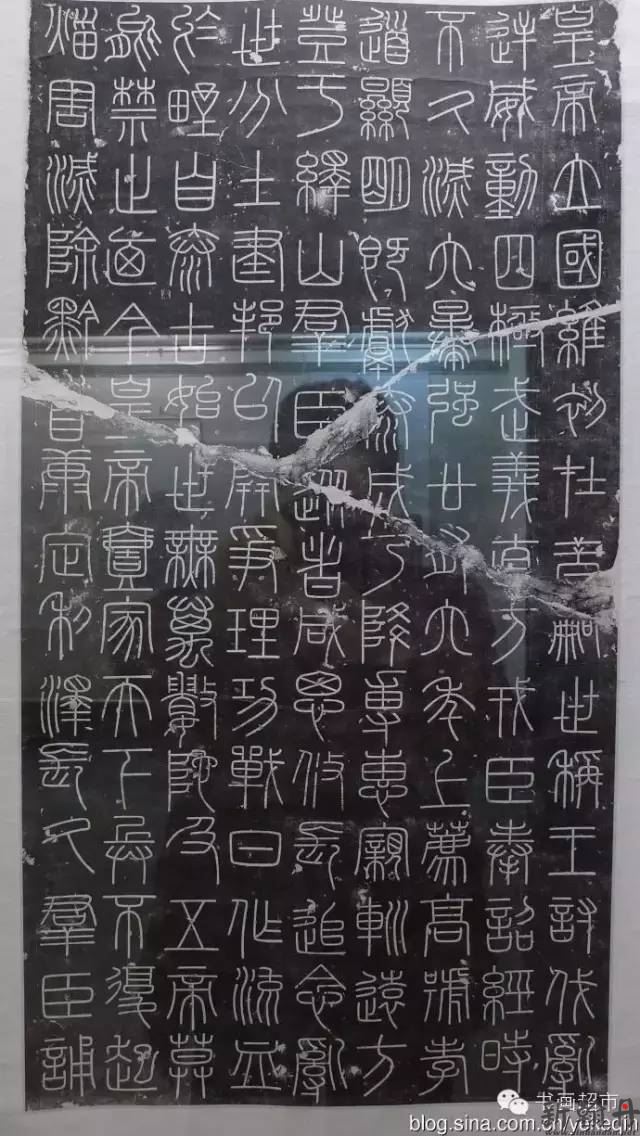 皇帝立國維初在昔嗣世稱王討伐亂
逆威動四極武義直方戎臣奉詔經時
不久滅六暴強廿有六年上薦高號孝
道顯明既獻泰成乃降專惠親巡遠方
登于繹山羣臣從者咸思攸長追念亂
世分土建邦以開爭理功戰日作流血
於野自泰古始世無萬數陀及五帝莫
能禁止廼今皇帝壹家天下兵不復起
災害滅除黔首康定利澤長久羣臣誦
书画超市
blog.sina.com.cn